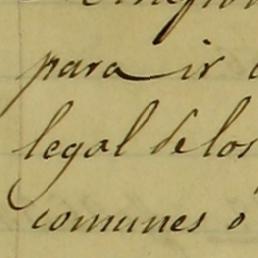 para ir
legal de los
comunes ó